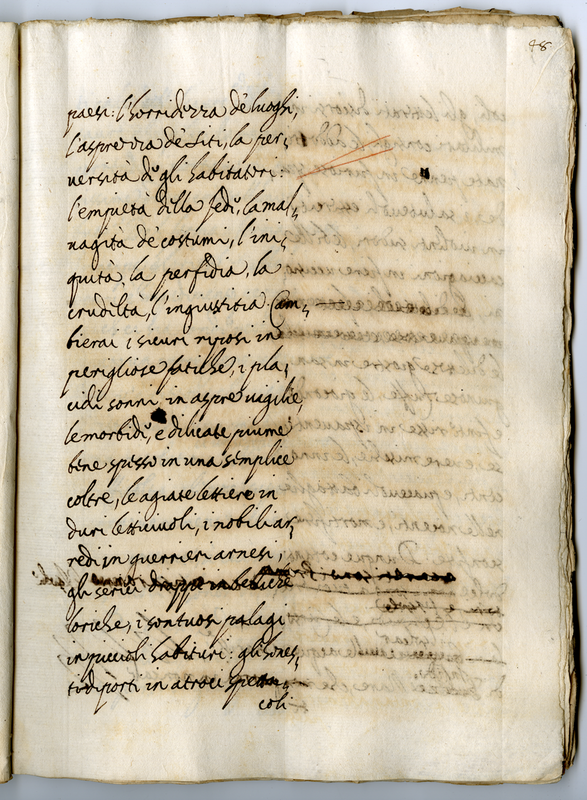 48
paesi: l'horridezza de' luoghi,
l'asprezza de' siti, la per,
versità de gli habitatori:
l'empietà della fede, la mal,
vagità de' costumi, l'ini,
quità, la perfidia, la
crudeltà, l'ingiustitia. Cam,
bierai i sicuri riposi in
perigliose fatiche, i pla,
cidi sonni in aspre vigilie,
le morbide, e delicate piume
bene spesso in una semplice
coltre, le agiate lettiere in
duri letticiuoli, i nobili ar,
redi in guerrieri arnesi,
gli serici drappi in
loriche, i sontuosi palagi
in piccioli habituri: gli hones,
ti diporti in atroci spetta,
coli